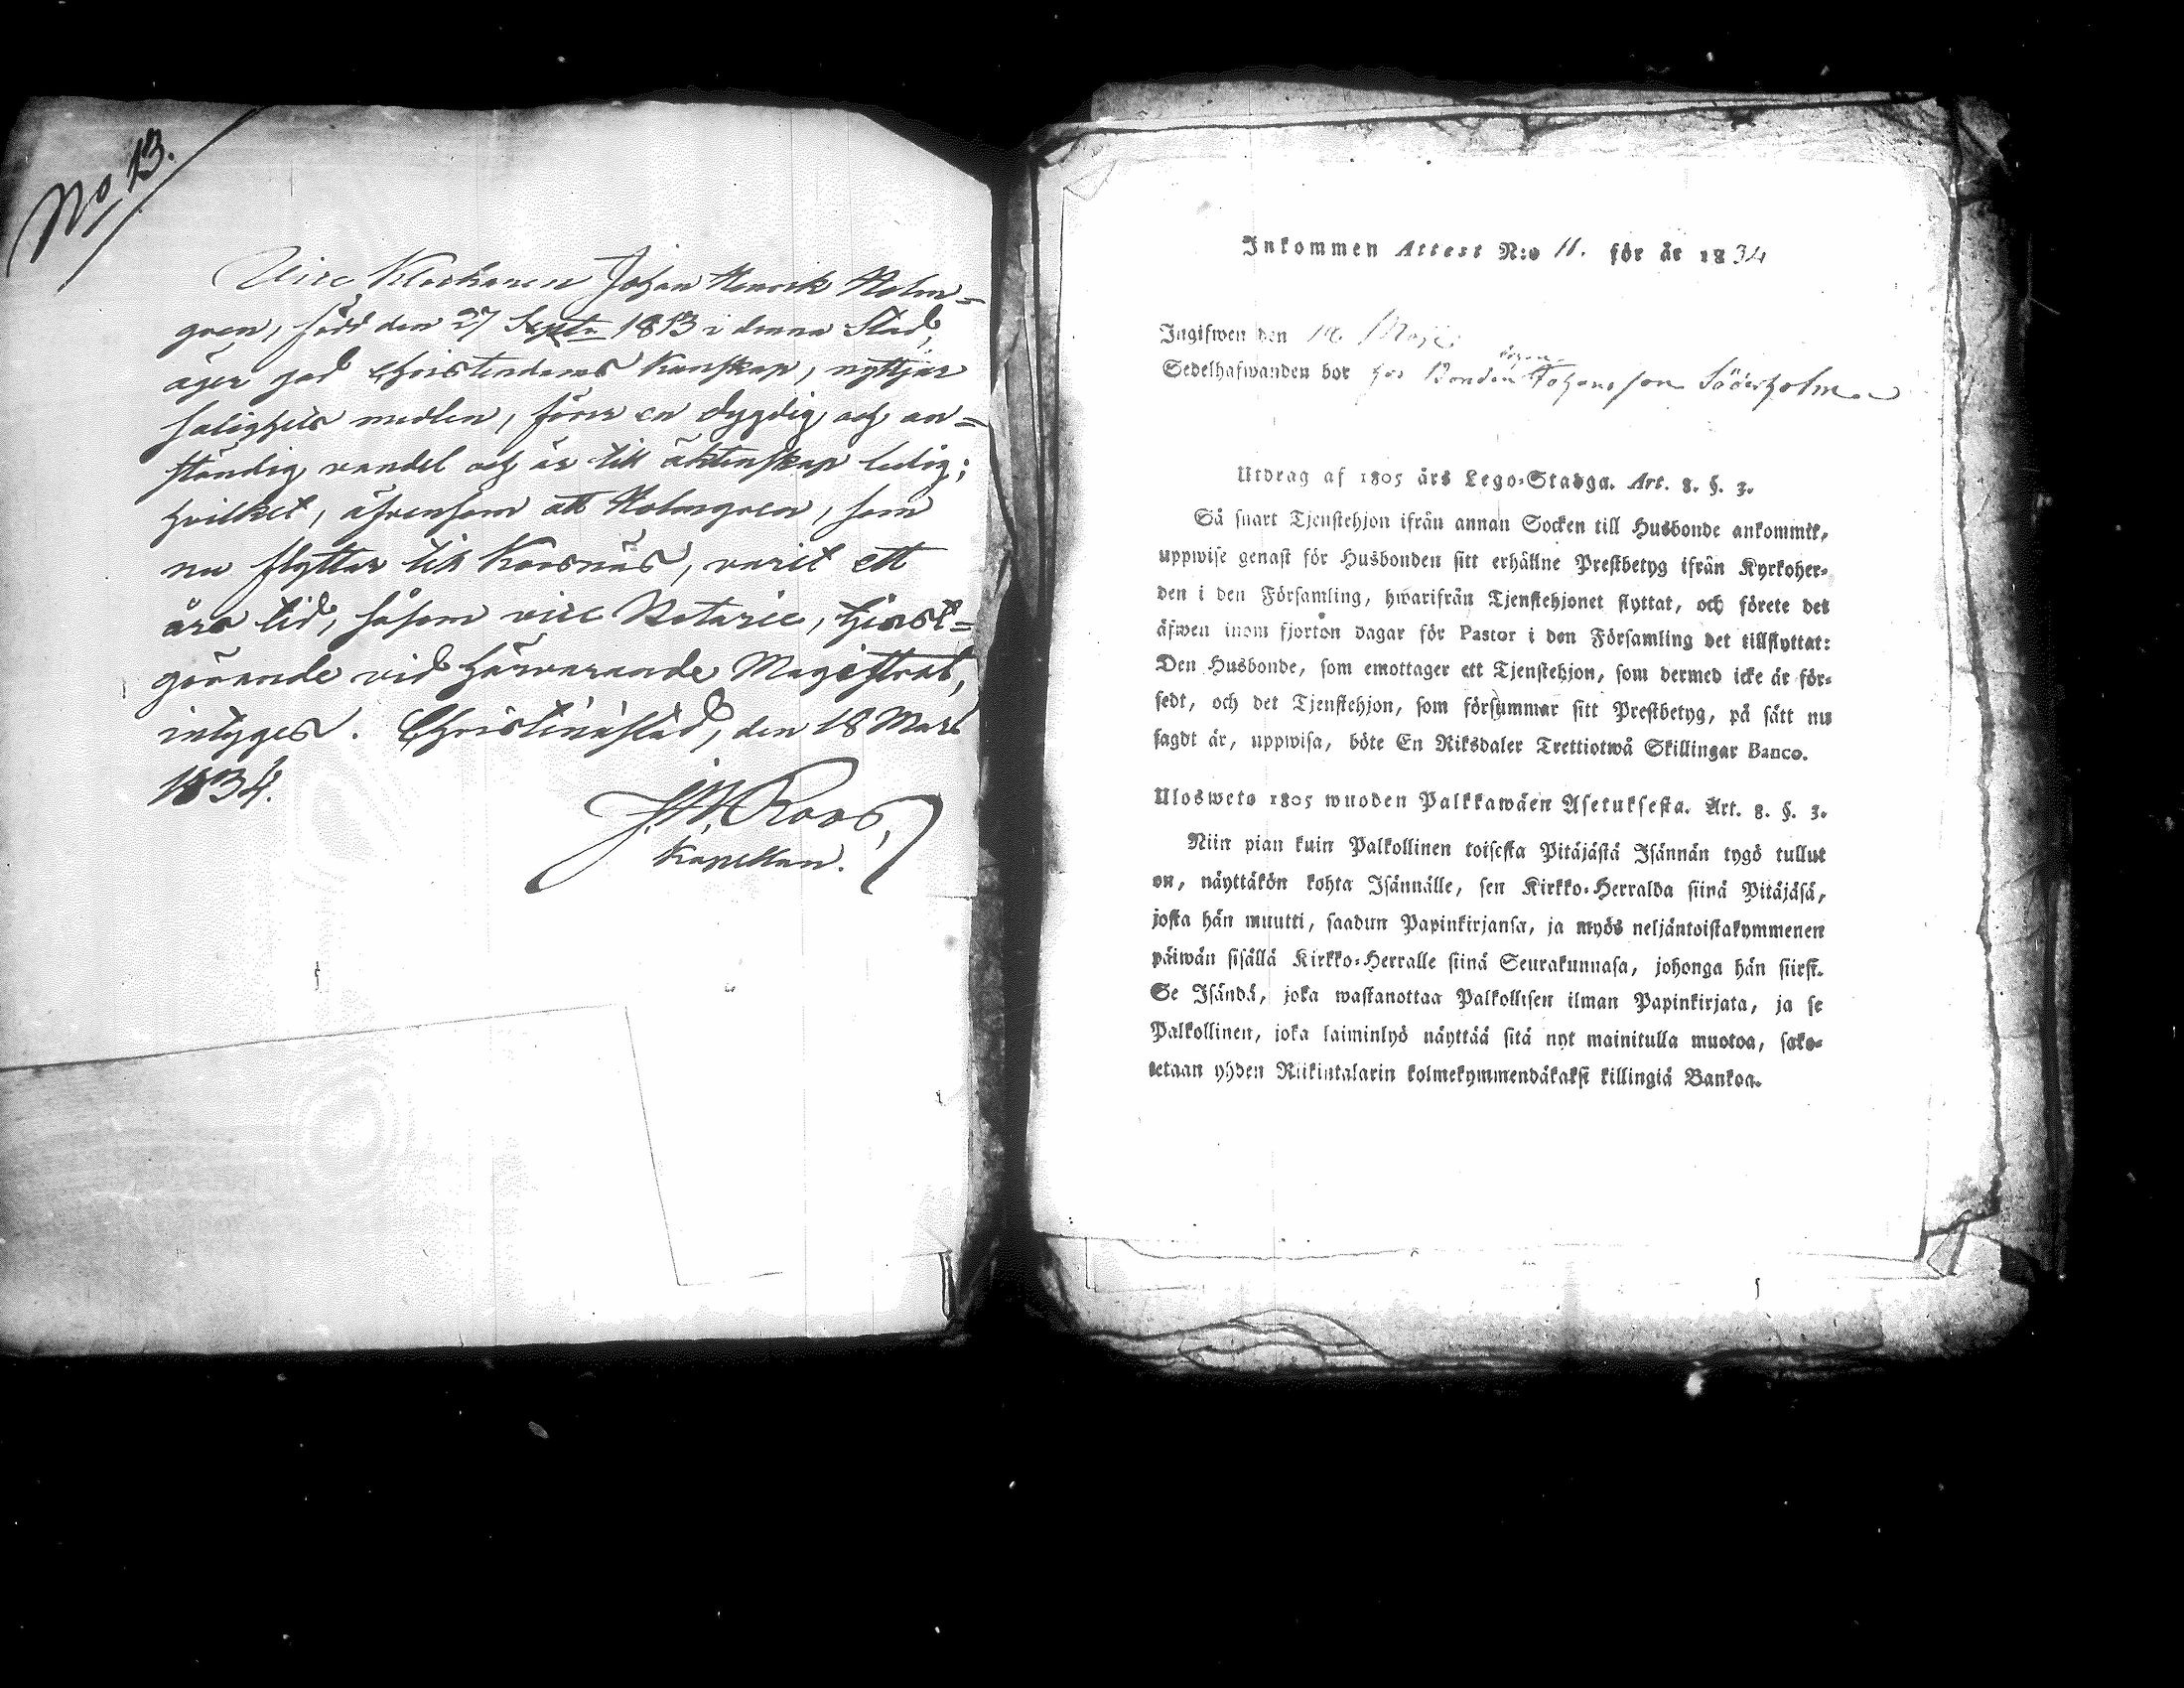 No 13.
Vice Klockaren Johan Henrik Holm=
gren, född den 27 Septr 1813 i denna Stad,
äger god Christendoms Kunskap, nyttjar
salighets medlen, förer en dygdig och an=
ständig vandel och är till äktenskap ledig;
hvilket, äfvensom att Holmgren, som
nu flyttar till Korsnäs, varit ett
års tid, såsom vice Notarie, tjenst=
görande vid härvarande Magistrat,
intygas. Christinæstad, den 18 Mars
1834.
Roos,
Kapellan.
Inkommen Attest N:o 11. för år 1834
Ingifwen den Maji
Sedelhafwanden bor hos Bonden Johansson Söderholm
Utdrag af 1805 års Lego-Stadga. Art. 8. §. 3.
Så snart Tjenstehjon ifrån annan Socken till Husbonde ankommit,
uppwise genast för Husbonden sitt erhållne Prestbetyg ifrån Kyrkoher-
den i den Församling, hwarifrån Tjenstehjonet flyttat, och förete det
äfwen inom fjorton dagar för Pastor i den Församling det tillflyttat:
Den Husbonde, som emottager ett Tjenstehjon, som dermed icke är för-
sedt, och det Tjenstehjon, som försummar sitt Prestbetyg, på sätt nu
sagdt är, uppwisa, böte En Riksdaler Trettiotwå Skillingar Banco.
Ulosweto 1805 wuoden Palkkawäen Asetuksesta. Art. 8. §. 3.
Niin pian kuin Palkollinen toisesta Pitäjästä Isännän tygö tullut
on, näyttäkön kohta Isännälle, sen Kirkko-Herralda siinä Pitäjäsä,
josta hän muutti, saadun Papinkirjansa, ja myös neljäntoistakymmenen
päiwän sisällä Kirkko-Herralle siinä Seurakunnasa, johonga hän siirst.
Se Isändä, joka wastanottaa Palkollisen ilman Papinkirjata, ja se
Palkollinen, joka laiminlyö näyttää sitä nyt mainitulla muotoa, sako-
tetaan yhden Riikintalarin kolmekymmendäkaksi killingiä Bankoa.